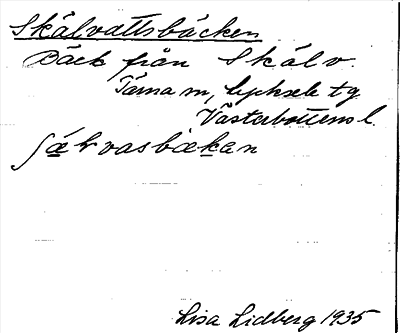 Skålvattsbäcken
Bäck från Skålv.
Tärna m, Lycksele tg
Västerbottens l.
Lisa Lidberg 1935